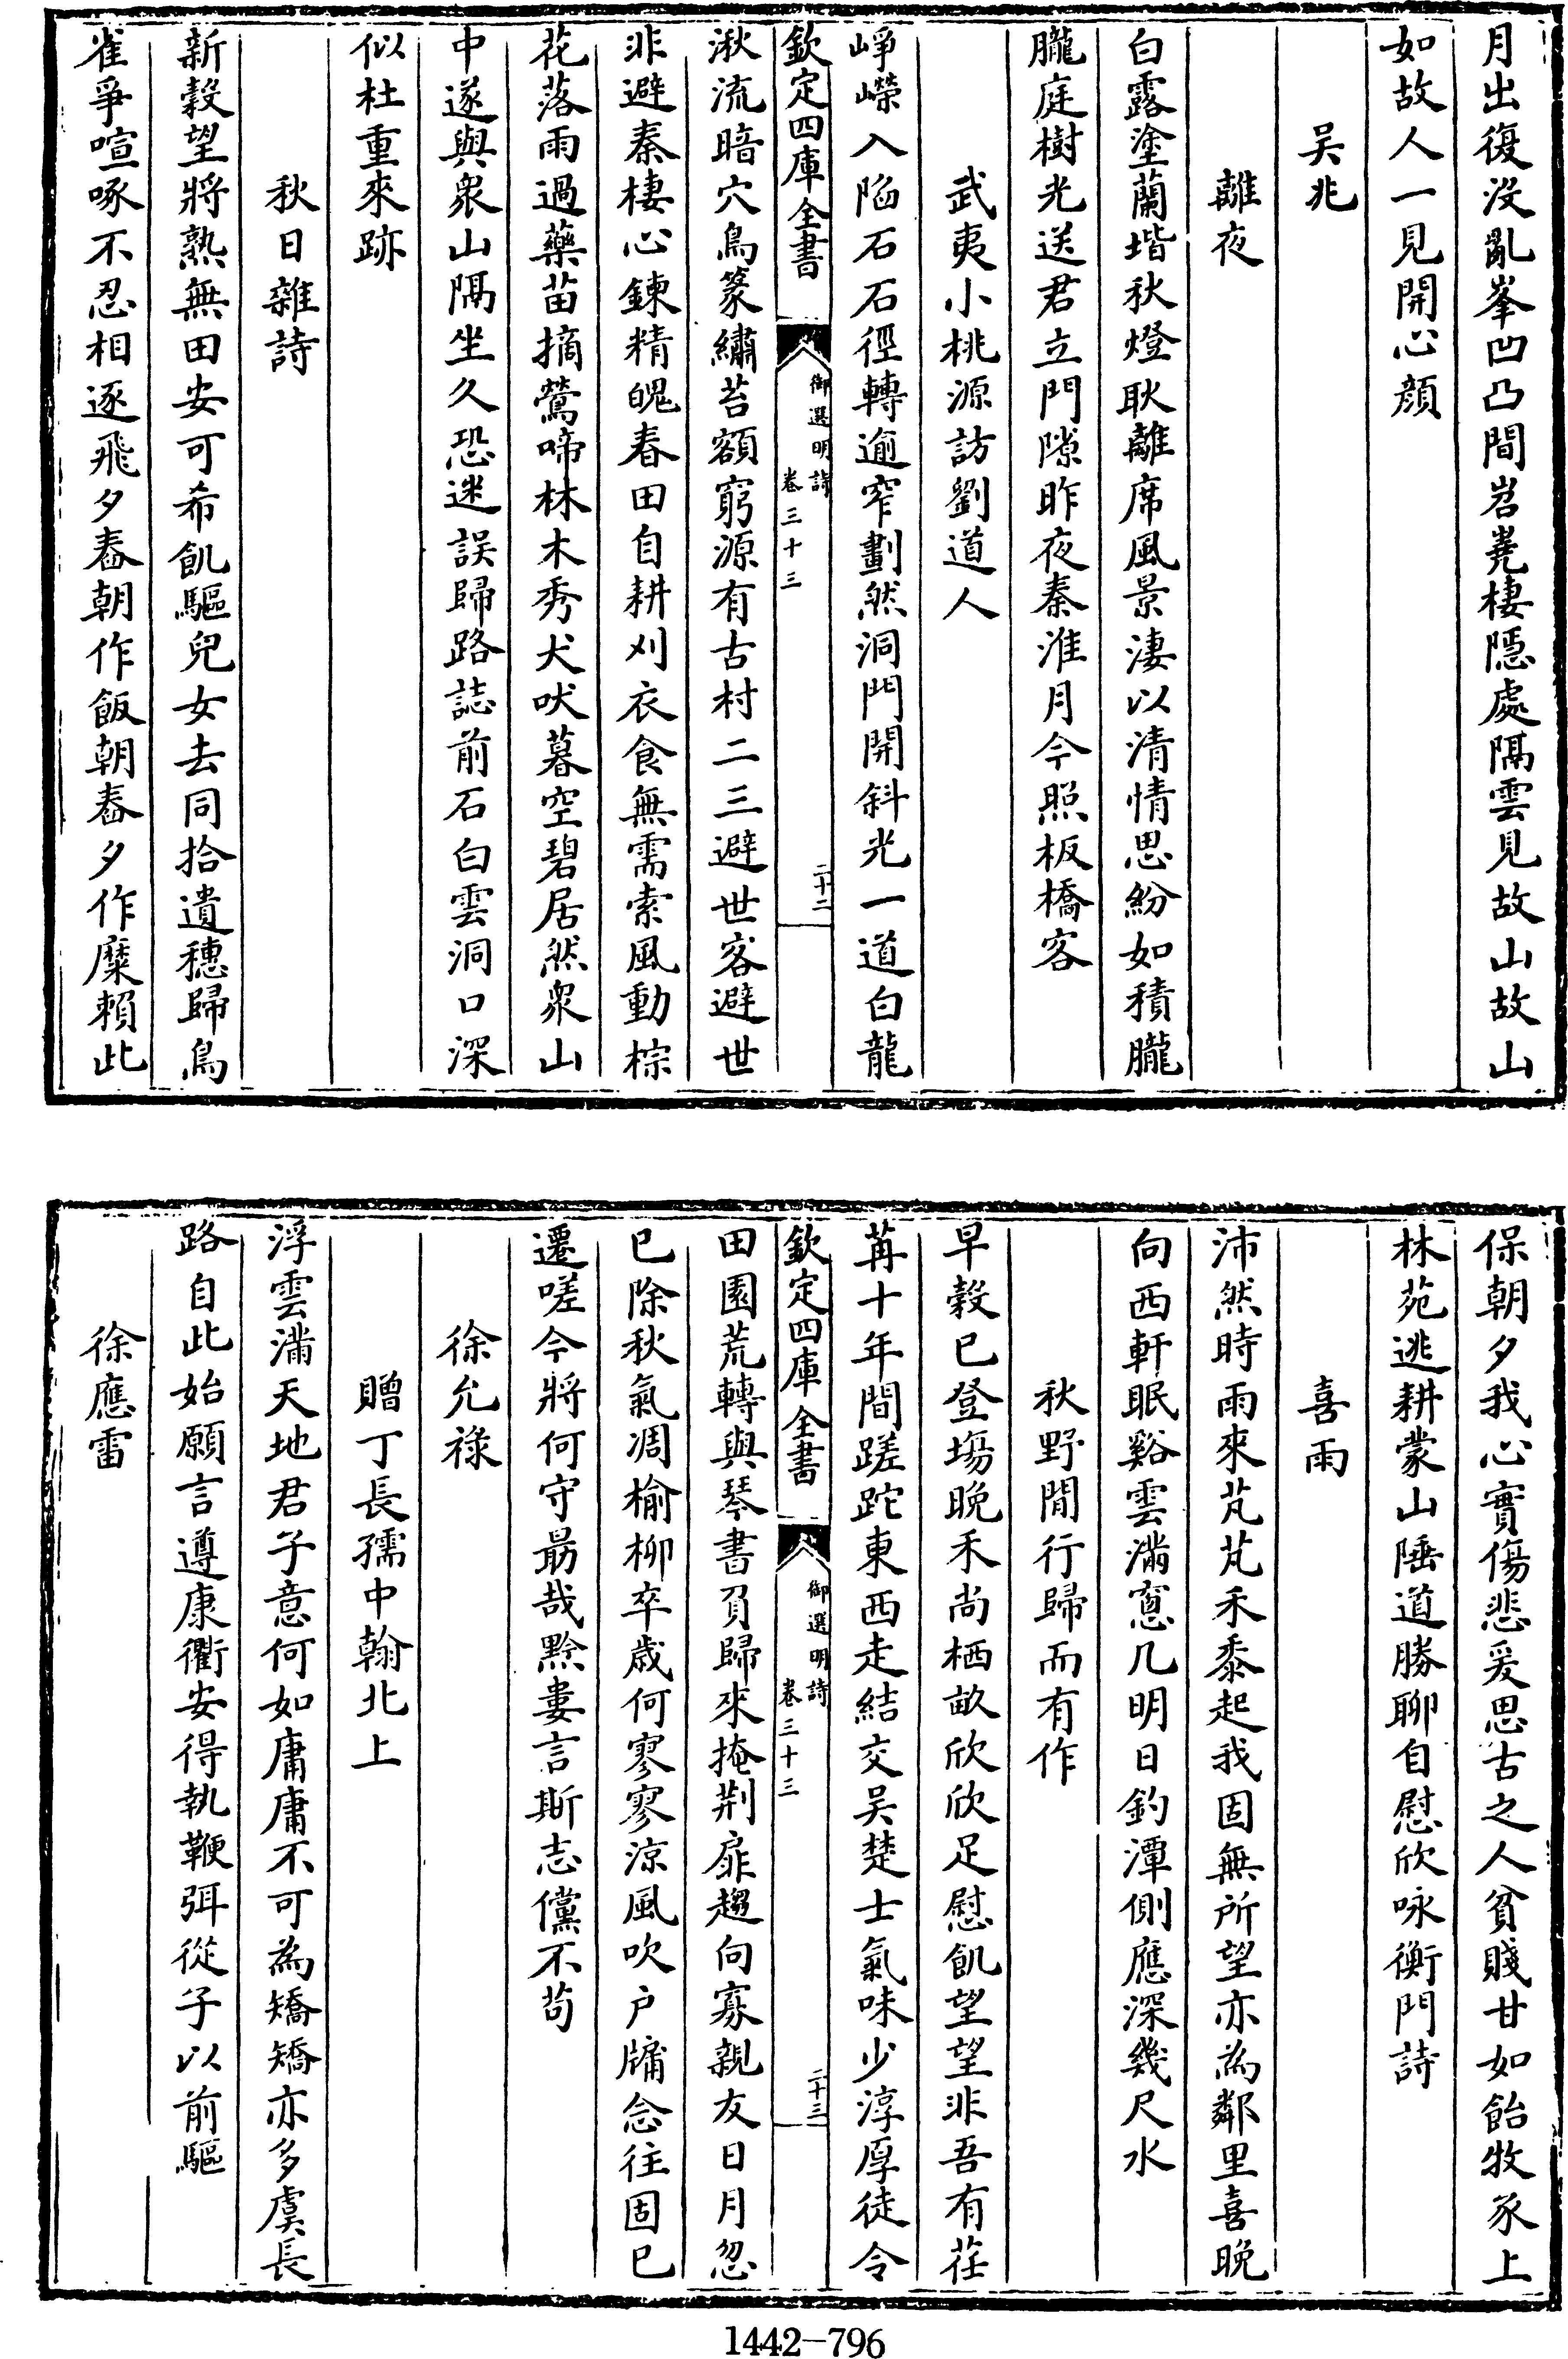 月出復没亂峯凹凸間岧嶤棲隱處隔雲見故山故山
如故人一見開心顔
吴兆
離夜
白露塗蘭堦秋燈耿離席風景淒以清情思紛如積朧
朧庭樹光送君立門隙昨夜秦淮月今照板橋客
武夷小桃源訪劉道人
崢嶸入陷石石徑轉逾窄劃然洞門開斜光一道白龍
欽定四庫全書
御選明詩
卷三十三
二十二
湫流暗穴鳥篆繡苔額窮源有古村二三避世客避世
非避秦棲心鍊精魄春田自耕刈衣食無需索風動棕
花落雨過藥苗摘鶯啼林木秀犬吠暮空碧居然衆山
中遂與衆山隔坐久恐迷誤歸路誌前石白雲洞口深
似杜重來跡
秋日雜詩
新穀望將熟無田安可希飢驅兒女去同拾遺穗歸鳥
雀爭喧啄不忍相逐飛夕舂朝作飯朝舂夕作糜賴此
保朝夕我心實傷悲爰思古之人貧賤甘如飴牧豕上
林苑逃耕蒙山陲道勝聊自慰欣咏衡門詩
喜雨
沛然時雨來芃芃禾黍起我固無所望亦為鄰里喜晚
向西軒眠谿雲滿窻几明日釣潭側應深幾尺水
秋野閒行歸而有作
早穀已登塲晚禾尚栖畝欣欣足慰飢望望非吾有荏
苒十年間蹉跎東西走結交吴楚士氣味少淳厚徒令
欽定四庫全書
御選明詩
卷三十三
二十三
田園荒轉與琴書負歸來掩荆扉趨向寡親友日月忽
已除秋氣凋榆柳卒歲何寥寥凉風吹户牖念往固已
遷嗟今將何守勗哉黔婁言斯志儻不苟
徐允祿
贈丁長孺中翰北上
浮雲滿天地君子意何如庸庸不可為矯矯亦多虞長
路自此始願言遵康衢安得執鞭弭從子以前驅
徐應雷
1442-796